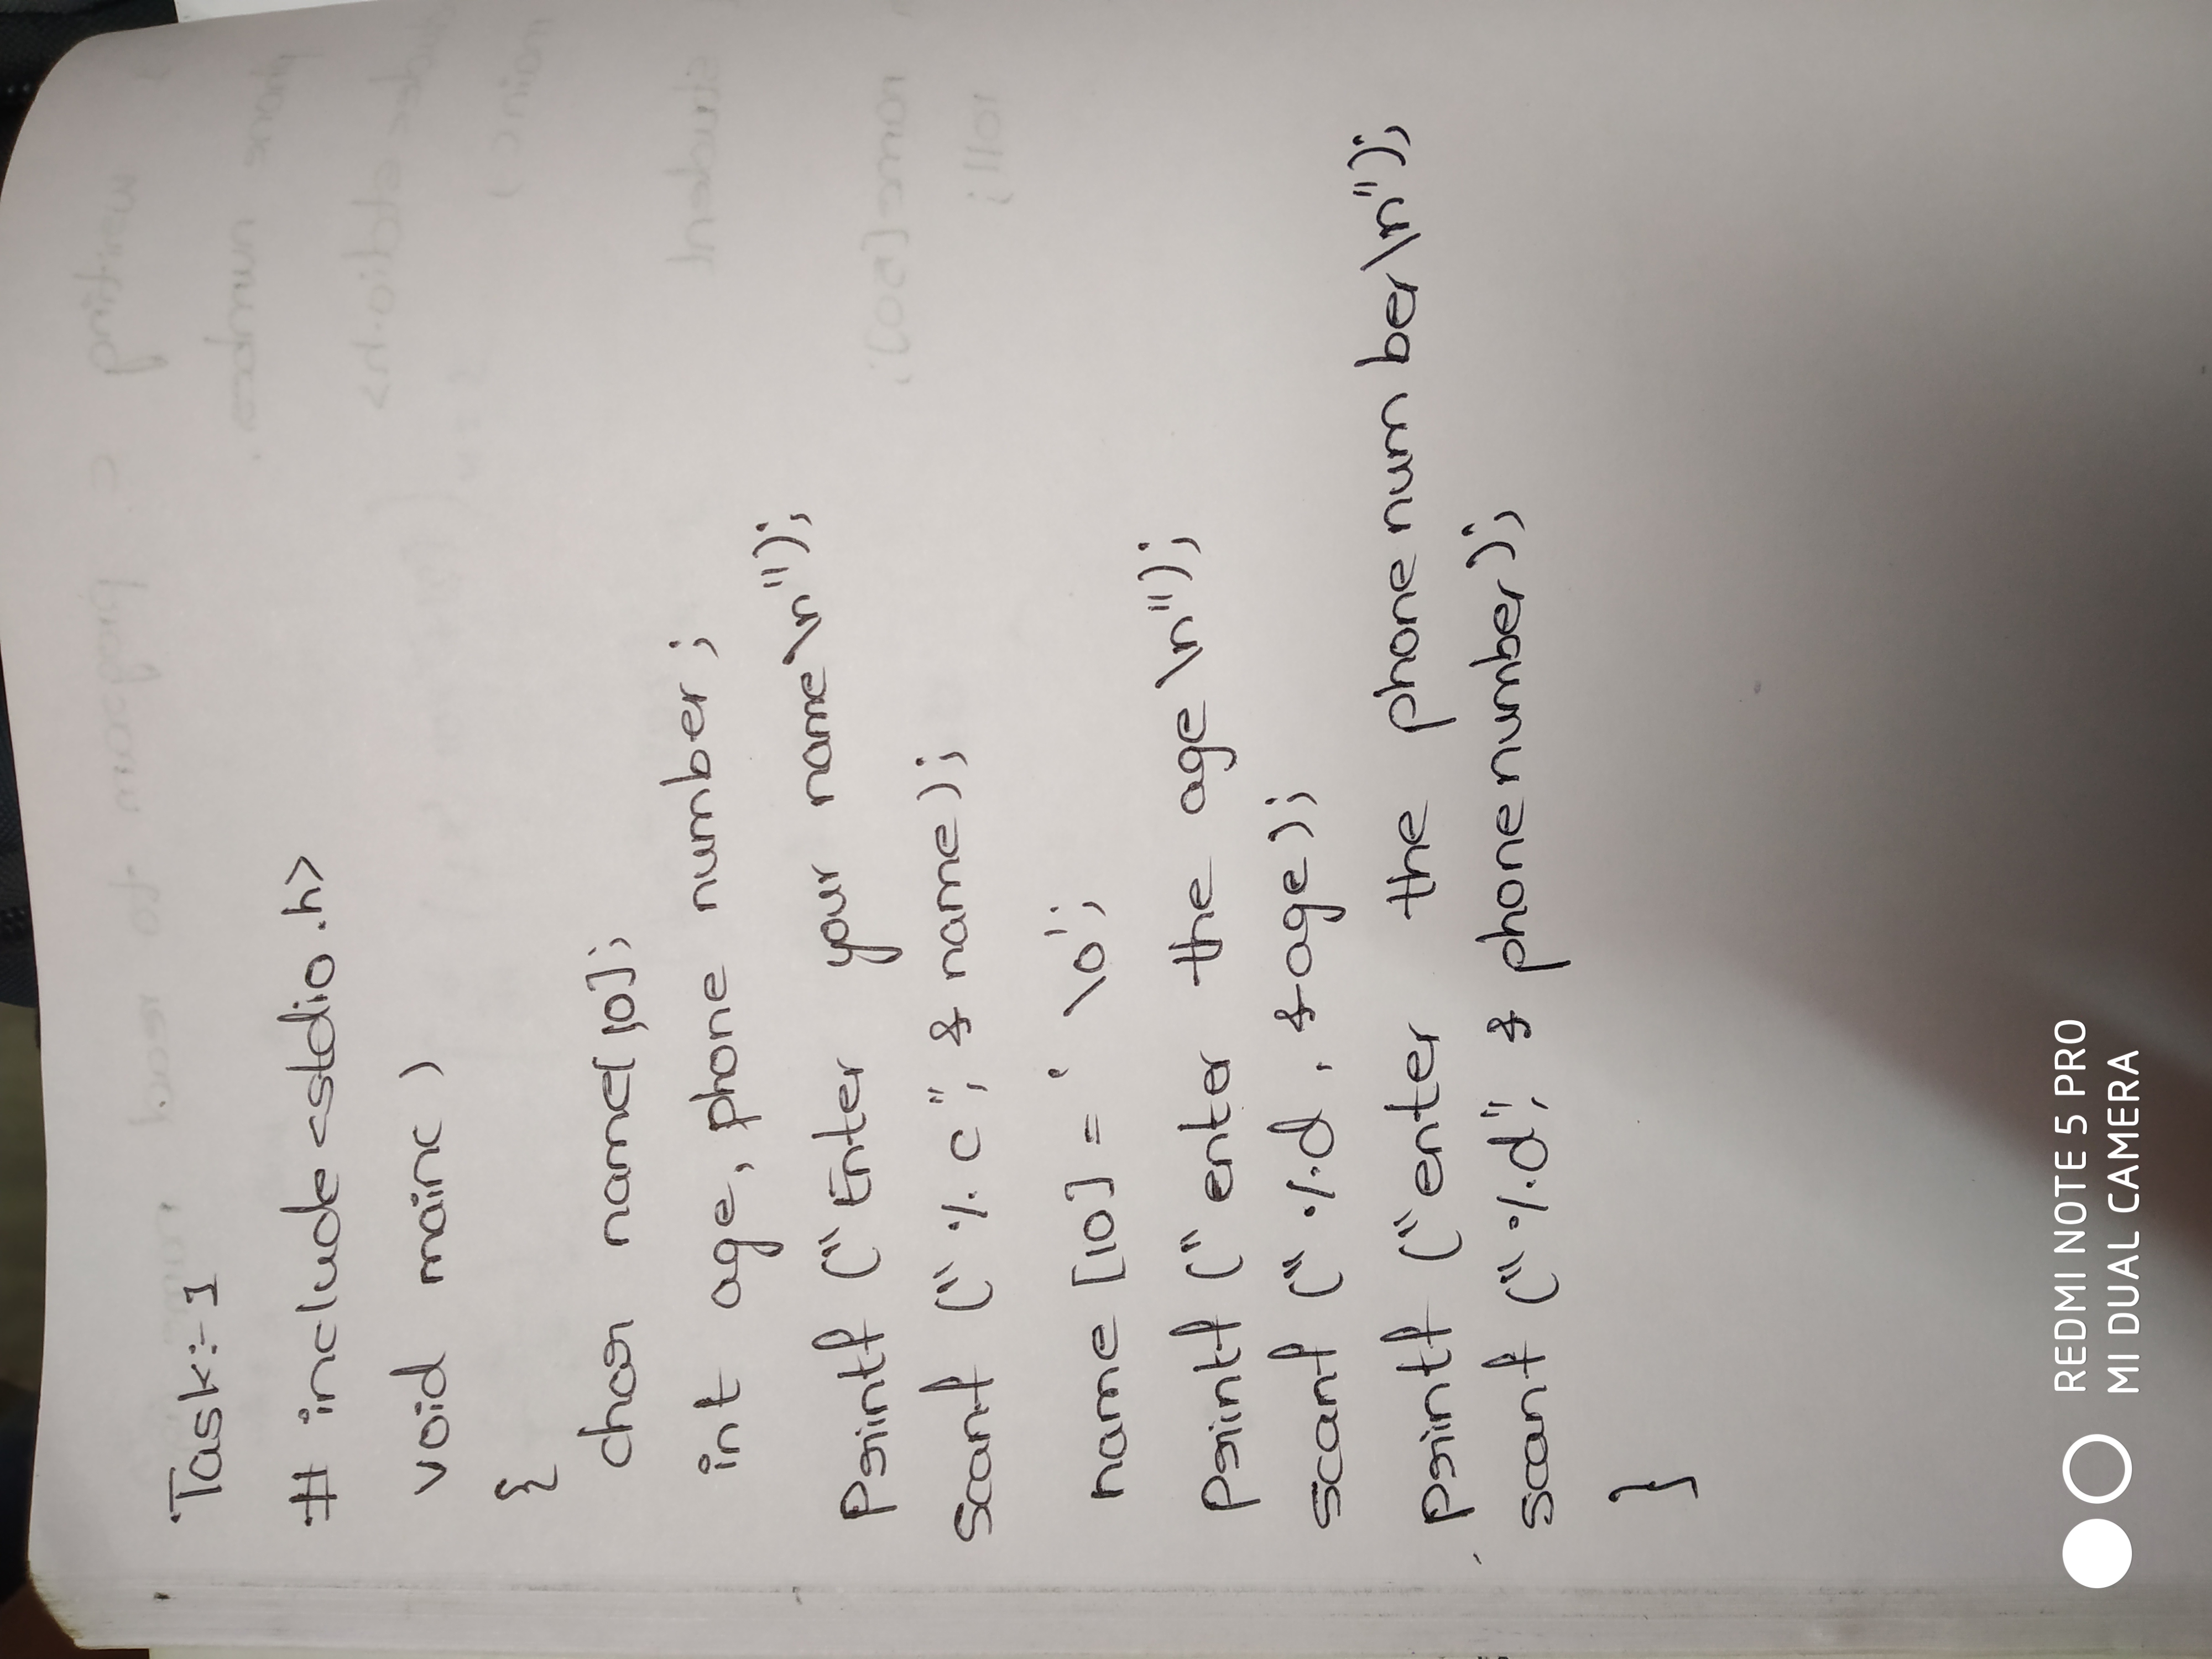 Task:- 1
# include <stdio.h>
void main( )
{
char name[10];
int age, phone number;
Printf ("Enter your name\n");
scanf ("%c", & name);
name [10] = '\0';
printf ("enter the age \n");
scanf ("%d, &age);
printf ("enter the phone number\n");
scanf ("%d", & phonenumber);
}
REDMI NOTE 5 PRO
MI DUAL CAMERA